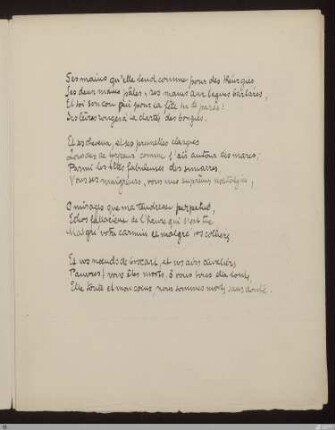 Ses mains qu'elle tend comme pour des théurgies,
Ses deux mains pâles, ses mains aux bagues barbares,
Et toi son cou qui pour la fête te pares !
Ses lèvres rouges à la clarté des bougies.
Et ses cheveux, et ses prunelles élargies
Lourdes de torpeur comme l'air autour des mares ;
Parmi les bêtes fabuleuses des simarres,
Vous ses maigreurs, vous mes suprêmes nostalgies,
O mirages que ma tendresse perpétue,
Echos fallacieux de l'heure qui s'est tue
Malgré votre carmin et malgré vos colliers,
Et vos nœuds de brocart, et vos airs cavaliers,
Pauvres ! vous êtes morts : ô vous tous du doute,
Elle toute et mon cœur nous sommes morts sans doute.